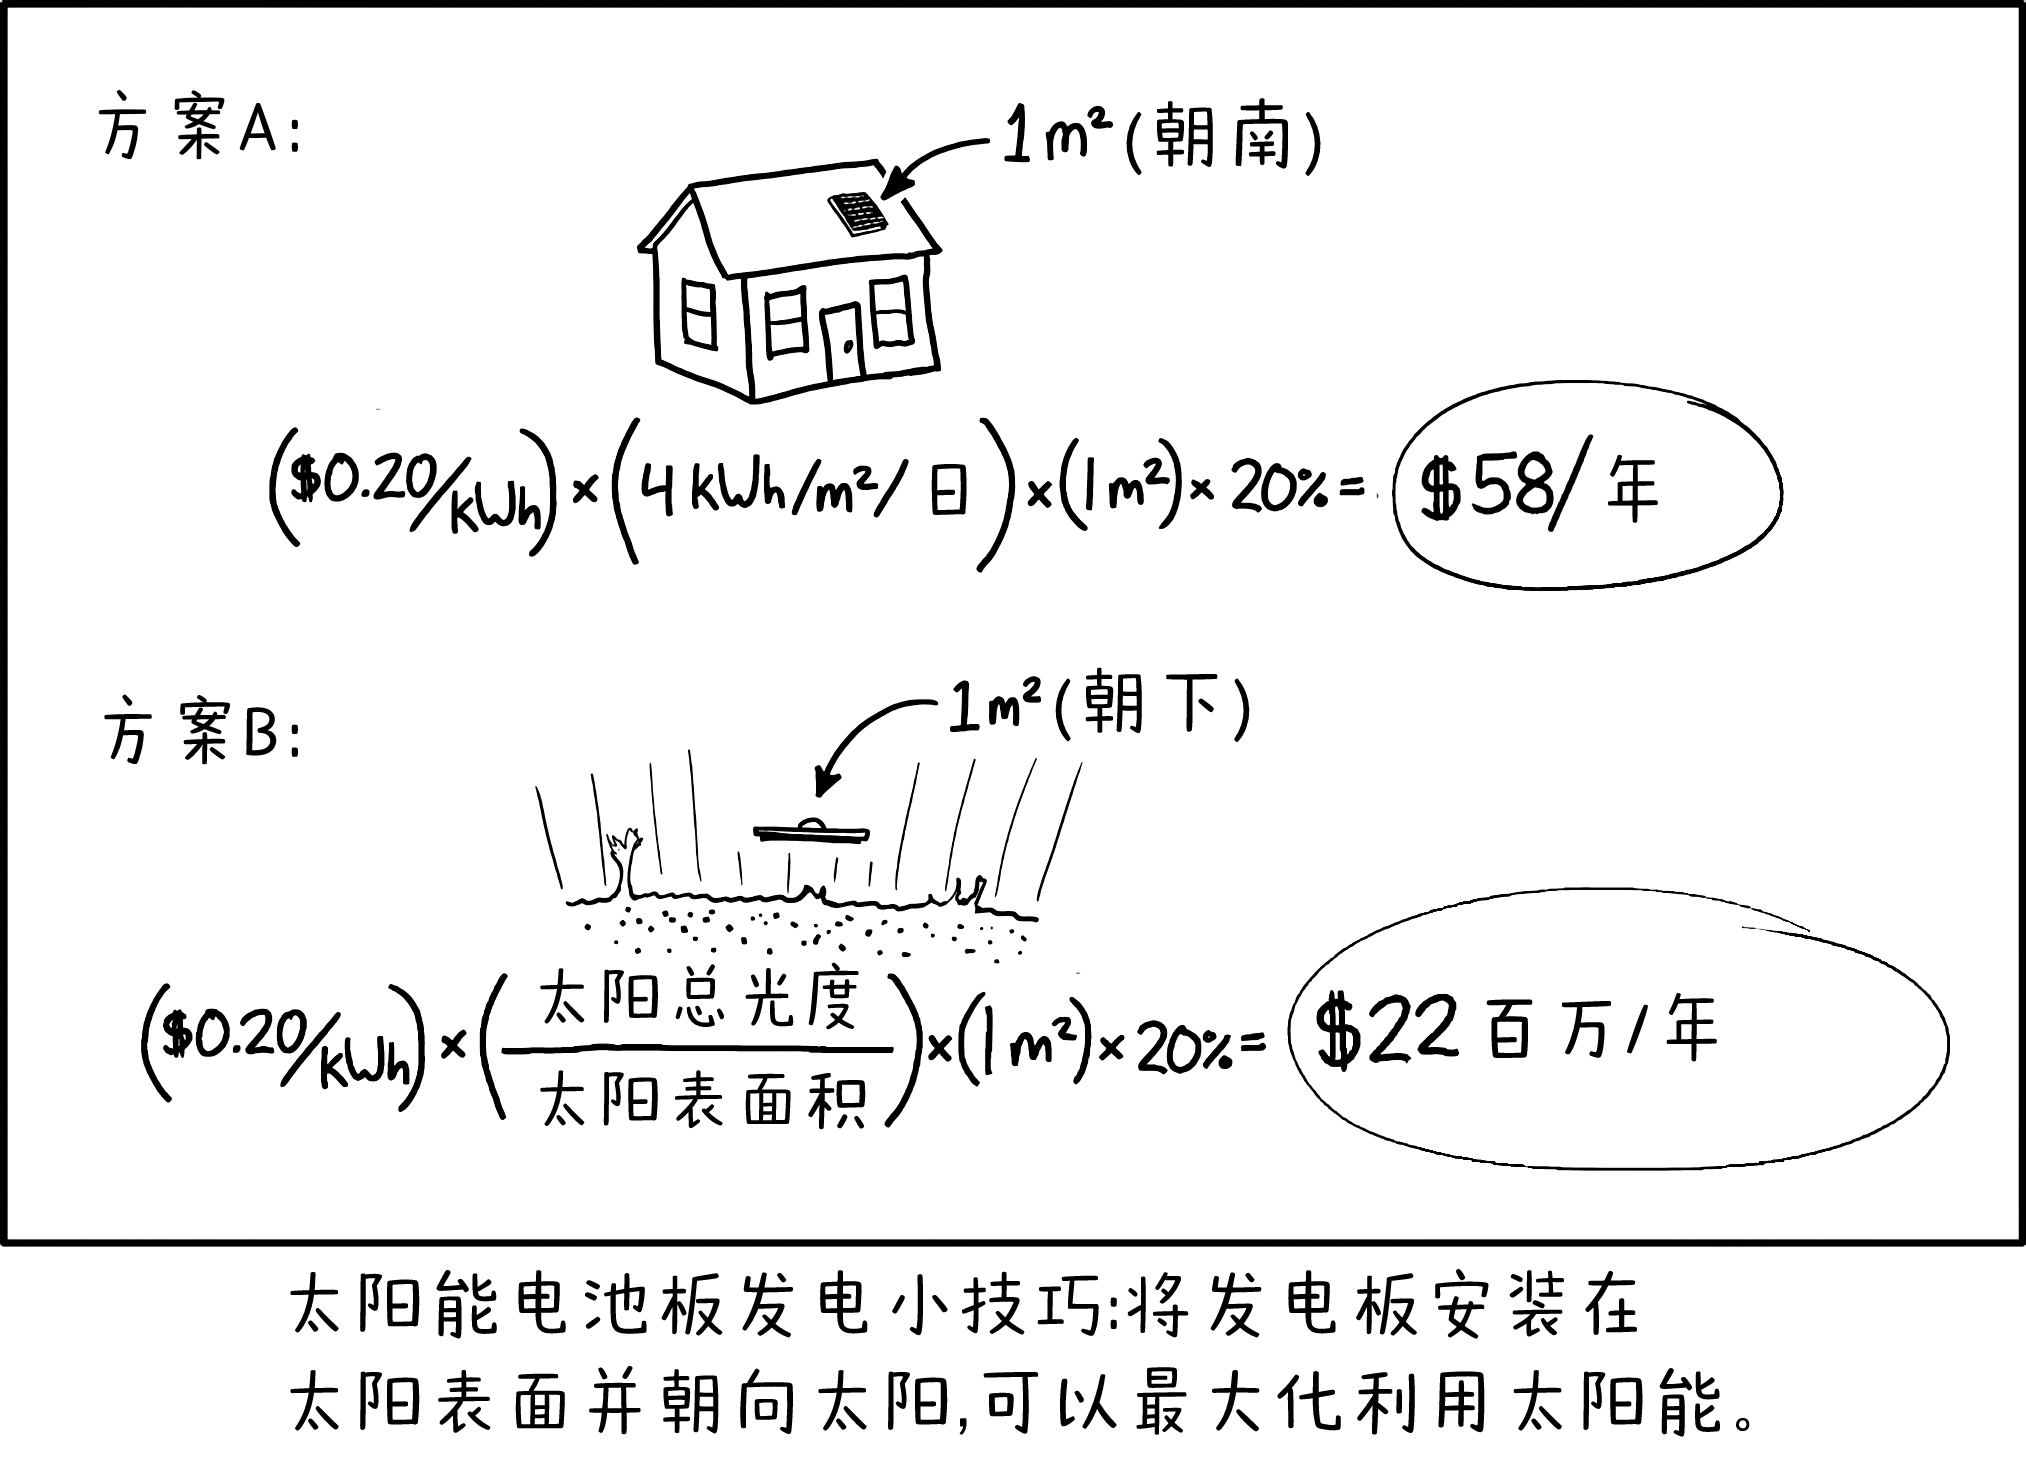 方案A:
1m²(朝南)
($0.20/kWh)×(4kWh/m²/日)×(1m²)×20%=$58/年
方案B:
1m²(朝下)
($0.20/kWh)×(太阳总光度/太阳表面积)×(1m²)×20%=$22百万/年
太阳能电池板发电小技巧:将发电板安装在
太阳表面并朝向太阳,可以最大化利用太阳能。